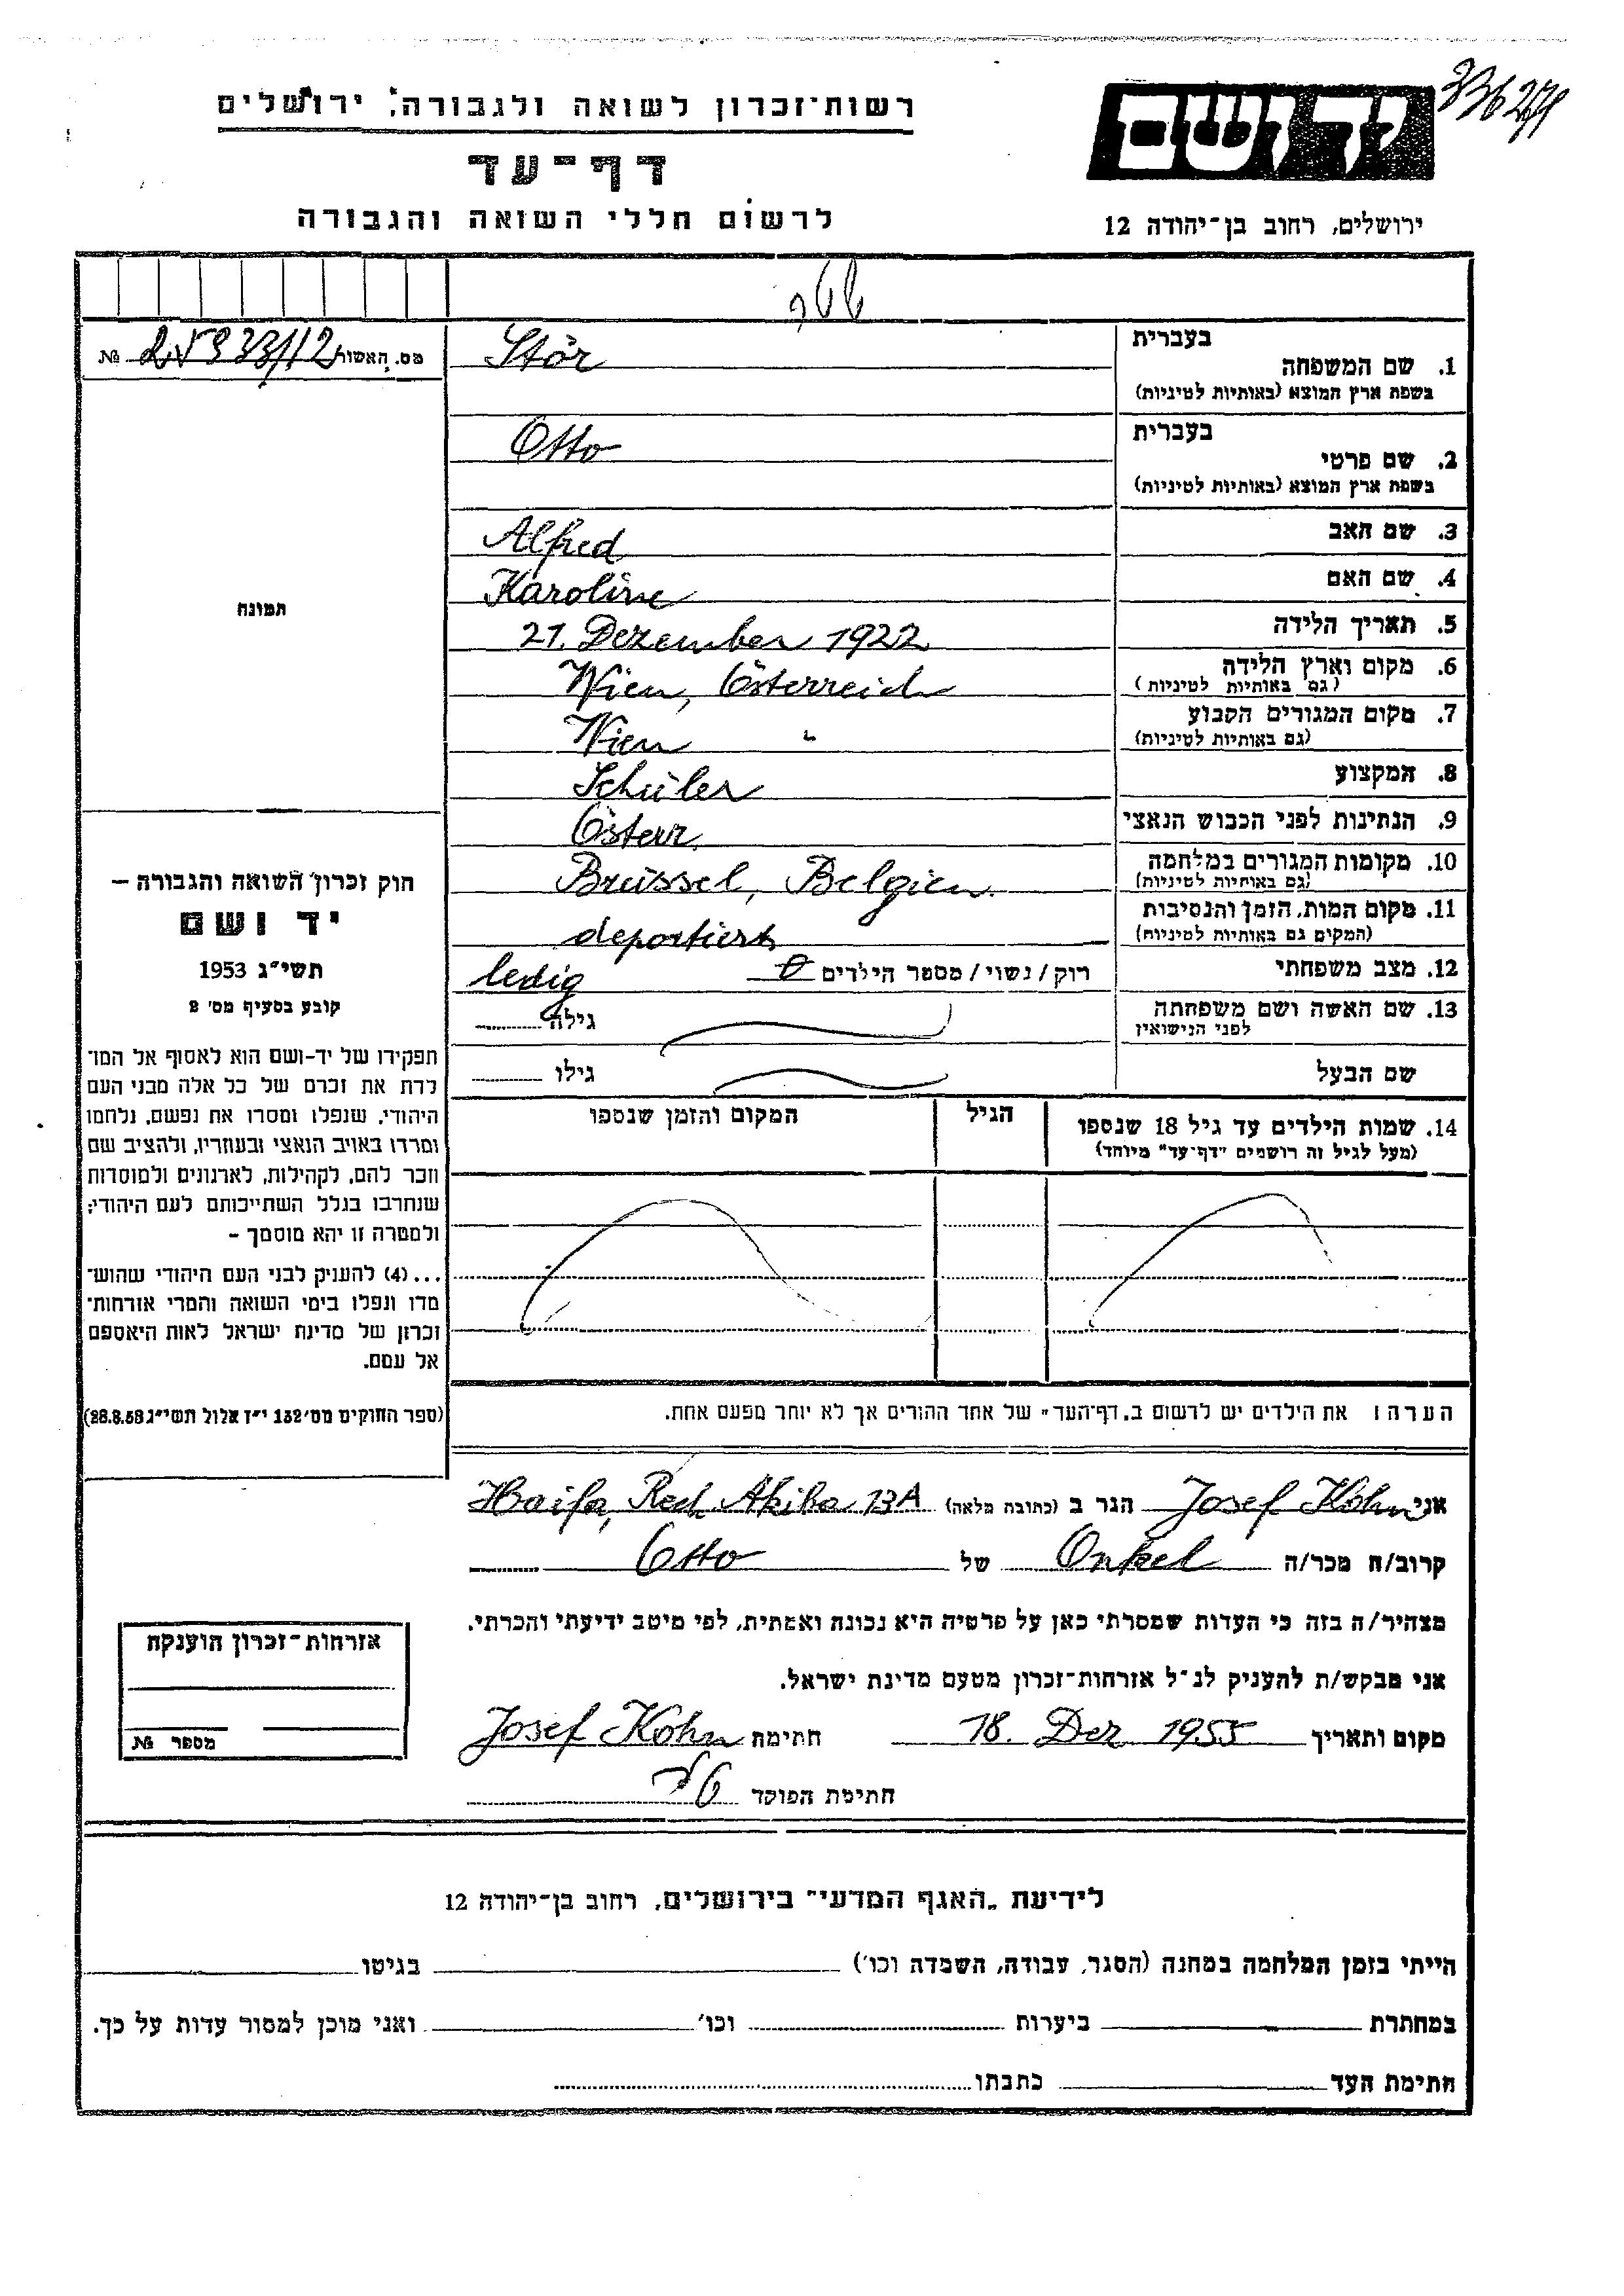 336279
רשות-זכרון לשואה ולגבורה, ירושלים
יד ושם
דף-עד
לרשום חללי השואה והגבורה
ירושלים, רחוב בן-יהודה 12
בעברית
1. שם המשפחה Stör
בשפת ארץ המוצא (באותיות לטיניות)
בעברית
2. שם פרטי Otto
בשפת ארץ המוצא (באותיות לטיניות)
3. שם האב Alfred
4. שם האם Karoline
5. תאריך הלידה 21. Dezember 1922
6. מקום וארץ הלידה Wien, Österreich
(גם באותיות לטיניות)
7. מקום המגורים הקבוע Wien "
(גם באותיות לטיניות)
8. המקצוע Schüler
9. הנתינות לפני הכבוש הנאצי Österr.
10. מקומות המגורים במלחמה Brüssel, Belgien.
(גם באותיות לטיניות)
11. מקום המות, הזמן והנסיבות deportiert
(המקום גם באותיות לטיניות)
12. מצב משפחתי רוק/נשוי/מספר הילדים 0 ledig
13. שם האשה ושם משפחתה גילה
לפני הנישואין
שם הבעל גילו
14. שמות הילדים עד גיל 18 שנספו הגיל המקום והזמן שנספו
(מעל לגיל זה רושמים "דף-עד" מיוחד)
הערה: את הילדים יש לרשום ב"דף-העד" של אחד ההורים אך לא יותר מפעם אחת.
מס. האשור 25933/12 №
תמונה
חוק זכרון השואה והגבורה –
יד ושם
תשי"ג 1953
קובע בסעיף מס' 2
תפקידו של יד-ושם הוא לאסוף אל המו-
לדת את זכרם של כל אלה מבני העם
היהודי, שנפלו ומסרו את נפשם, נלחמו
ומרדו באויב הנאצי ובעוזריו, ולהציב שם
וזכר להם, לקהילות, לארגונים ולמוסדות
שנחרבו בגלל השתייכותם לעם היהודי;
ולמטרה זו יהא מוסמך –
...(4) להעניק לבני העם היהודי שהוש-
מדו ונפלו בימי השואה והמרי אזרחות-
זכרון של מדינת ישראל לאות היאספם
אל עמם.
(ספר החוקים מס' 132 י"ז אלול תשי"ג 28.8.53)
אני Josef Kohn הגר ב (כתובת מלאה) Haifa, Rech Akiba 13A
קרוב/ה מכר/ה Onkel של Otto
מצהיר/ה בזה כי העדות שמסרתי כאן על פרטיה היא נכונה ואמתית, לפי מיטב ידיעתי והכרתי.
אני מבקש/ת להעניק לנ"ל אזרחות-זכרון מטעם מדינת ישראל.
מקום ותאריך 18. Dez 1955 חתימת Josef Kohn
חתימת הפוקד
אזרחות-זכרון הוענקה
מספר №
לידיעת "האגף המדעי" בירושלים, רחוב בן-יהודה 12
הייתי בזמן המלחמה במחנה (הסגר, עבודה, השמדה וכו') בגיטו
במחתרת ביערות וכו' ואני מוכן למסור עדות על כך.
חתימת העד כתבתו